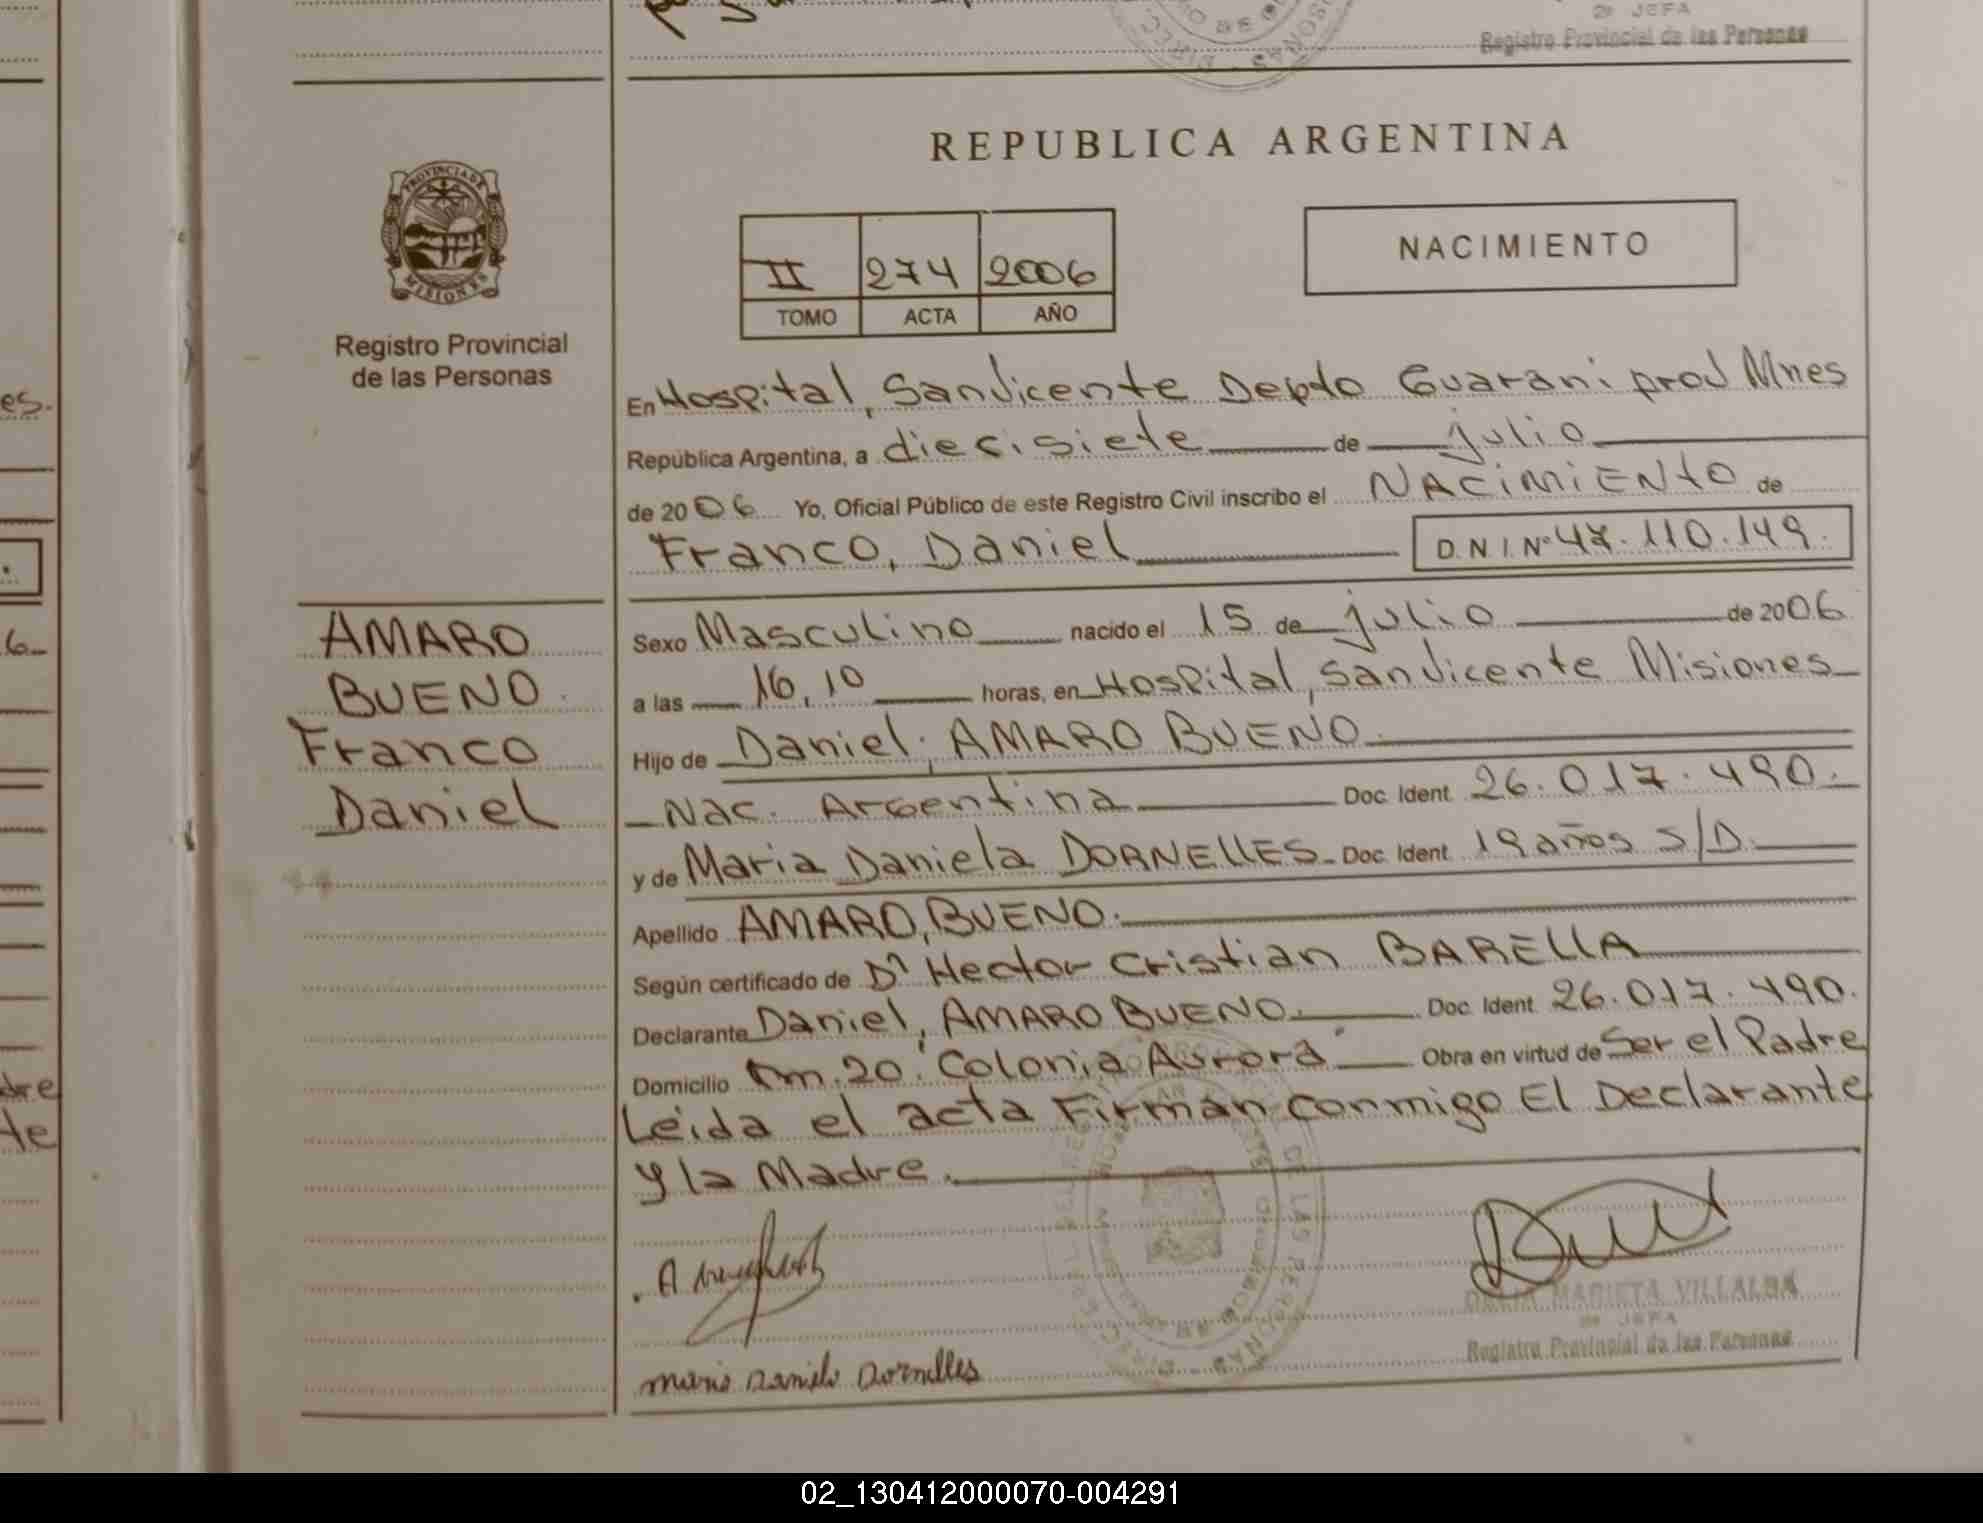 2º JEFA
Registro Provincial de las Personas
REPUBLICA ARGENTINA
PROVINCIA DE
MISIONES
Registro Provincial
de las Personas
II 274 2006
TOMO ACTA AÑO
NACIMIENTO
En Hospital, San Vicente Depto Guarani prov Mnes
República Argentina, a diecisiete de julio
de 2006 Yo, Oficial Público de este Registro Civil inscribo el NACIMIENTO de
Franco, Daniel D.N.I.Nº 47.110.149.
AMARO
BUENO
Franco
Daniel
Sexo Masculino nacido el 15 de julio de 2006
a las 16,10 horas, en Hospital, San Vicente Misiones
Hijo de Daniel, AMARO BUENO.
Nac. Argentina Doc. Ident. 26.017.490.
y de Maria Daniela DORNELLES. Doc. Ident. 19 años S/D.
Apellido AMARO, BUENO.
Según certificado de Dr Hector Cristian BARELLA
Declarante Daniel, AMARO BUENO. Doc. Ident. 26.017.490.
Domicilio Km. 20. Colonia Aurora Obra en virtud de Ser el Padre
Leida el acta Firman conmigo El Declarante
y la Madre.
MARIETA VILLALBA
2º JEFA
Registro Provincial de las Personas
maria Daniela Dornelles
es.
6
dre
te
02_130412000070-004291